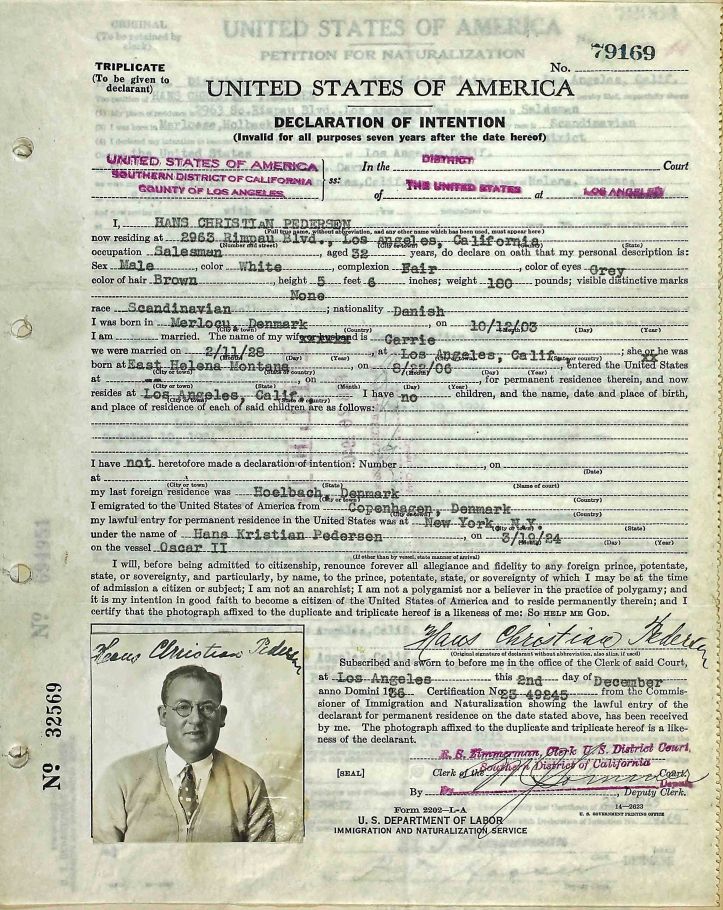 TRIPLICATE
(To be given to
declarant)
No. 79169
UNITED STATES OF AMERICA
DECLARATION OF INTENTION
(Invalid for all purposes seven years after the date hereof)
UNITED STATES OF AMERICA
SOUTHERN DISTRICT OF CALIFORNIA
COUNTY OF LOS ANGELES
ss:
In the DISTRICT Court
of THE UNITED STATES at LOS ANGELES
I, HANS CHRISTIAN PEDERSEN
(Full true name, without abbreviation, and any other name which has been used, must appear here)
now residing at 2963 Rimpau Blvd., Los Angeles, California,
(Number and street) (City or town) (State)
occupation Salesman, aged 32 years, do declare on oath that my personal description is:
Sex Male, color White, complexion Fair, color of eyes Grey
color of hair Brown, height 5 feet 6 inches; weight 180 pounds; visible distinctive marks
None
race Scandinavian; nationality Danish
I was born in Merlocu, Denmark, on 10/12/03
(City or town) (Country) (Day) (Year)
I am married. The name of my wife or husband is Carrie
we were married on 2/11/28, at Los Angeles, Calif.; she or he was
(Month) (Day) (Year) (State or country)
born at East Helena Montana, on 8/22/06, entered the United States
(City or town) (State or country) (Month) (Day) (Year)
at, on, for permanent residence therein, and now
(City or town) (State) (Month) (Day) (Year)
resides at Los Angeles, Calif. I have no children, and the name, date and place of birth,
(City or town) (State or country)
and place of residence of each of said children are as follows:
I have not heretofore made a declaration of intention: Number, on
(Date)
at
(City or town) (State) (Name of court)
my last foreign residence was Hoelbach, Denmark
(City or town) (Country)
I emigrated to the United States of America from Copenhagen, Denmark
(City or town) (Country)
my lawful entry for permanent residence in the United States was at New York, N.Y.
(City or town) (State)
under the name of Hans Kristian Pedersen, on 3/19/24
(Month) (Day) (Year)
on the vessel Oscar II
(If other than by vessel, state manner of arrival)
I will, before being admitted to citizenship, renounce forever all allegiance and fidelity to any foreign prince, potentate,
state, or sovereignty, and particularly, by name, to the prince, potentate, state, or sovereignty of which I may be at the time
of admission a citizen or subject; I am not an anarchist; I am not a polygamist nor a believer in the practice of polygamy; and
it is my intention in good faith to become a citizen of the United States of America and to reside permanently therein; and I
certify that the photograph affixed to the duplicate and triplicate hereof is a likeness of me: SO HELP ME GOD.
Hans Christian Pedersen
(Original signature of declarant without abbreviation, also alias, if used)
Hans Christian Pedersen
Subscribed and sworn to before me in the office of the Clerk of said Court,
at Los Angeles this 2nd day of December
anno Domini 1936 Certification No. 23 49245 from the Commis-
sioner of Immigration and Naturalization showing the lawful entry of the
declarant for permanent residence on the date stated above, has been received
by me. The photograph affixed to the duplicate and triplicate hereof is a like-
ness of the declarant.
R. S. Zimmerman, Clerk U. S. District Court,
Southern District of California
[SEAL]
Clerk of the Court.
By, Deputy Clerk.
No 32569
Form 2202-L-A
U. S. DEPARTMENT OF LABOR
IMMIGRATION AND NATURALIZATION SERVICE
14—2623
U. S. GOVERNMENT PRINTING OFFICE